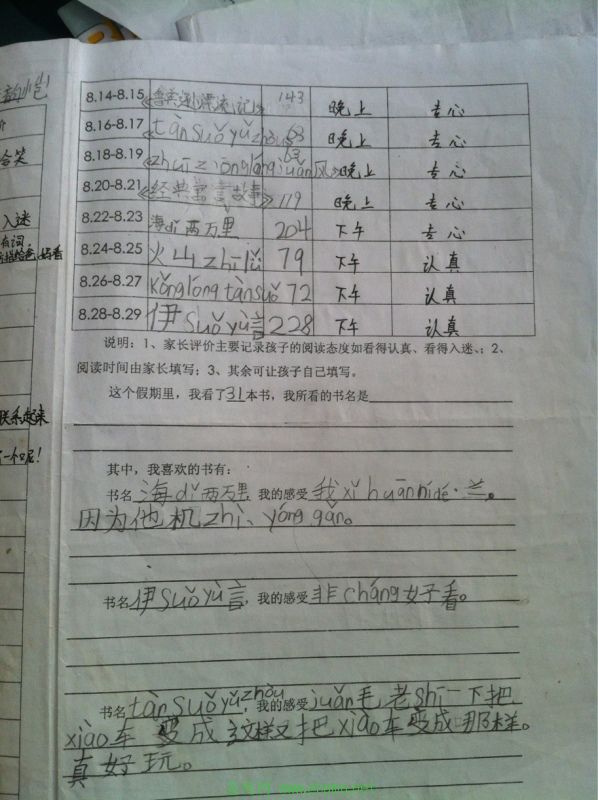 8.14-8.15 《鲁宾孙漂流记》 143 晚上 专心
8.16-8.17 tàn suǒ yǔ zhòu 63 晚上 专心
8.18-8.19 晚上 专心
8.20-8.21 《经典寓言故事》 119 晚上 专心
8.22-8.23 海dǐ两万里 204 下午 专心
8.24-8.25 火山zhī 79 下午 认真
8.26-8.27 kǒnglóng tànsuǒ 72 下午 认真
8.28-8.29 伊suǒ yù言 228 下午 认真
说明：1、家长评价主要记录孩子的阅读态度如看得认真、看得入迷、；2、
阅读时间由家长填写；3、其余可让孩子自己填写。
这个假期里，我看了31本书，我所看的书名是
其中，我喜欢的书有：
书名海dǐ两万里，我的感受我xǐ huān ní dé·兰。
因为他机zhì、yǒng gǎn。
书名伊suǒ yù言，我的感受非cháng好看。
书名tàn suǒ yǔ zhòu，我的感受juǎn毛老shī一下把
xiào车变成这样又把xiào车变成那样。
真好玩。
入迷
有词
好看